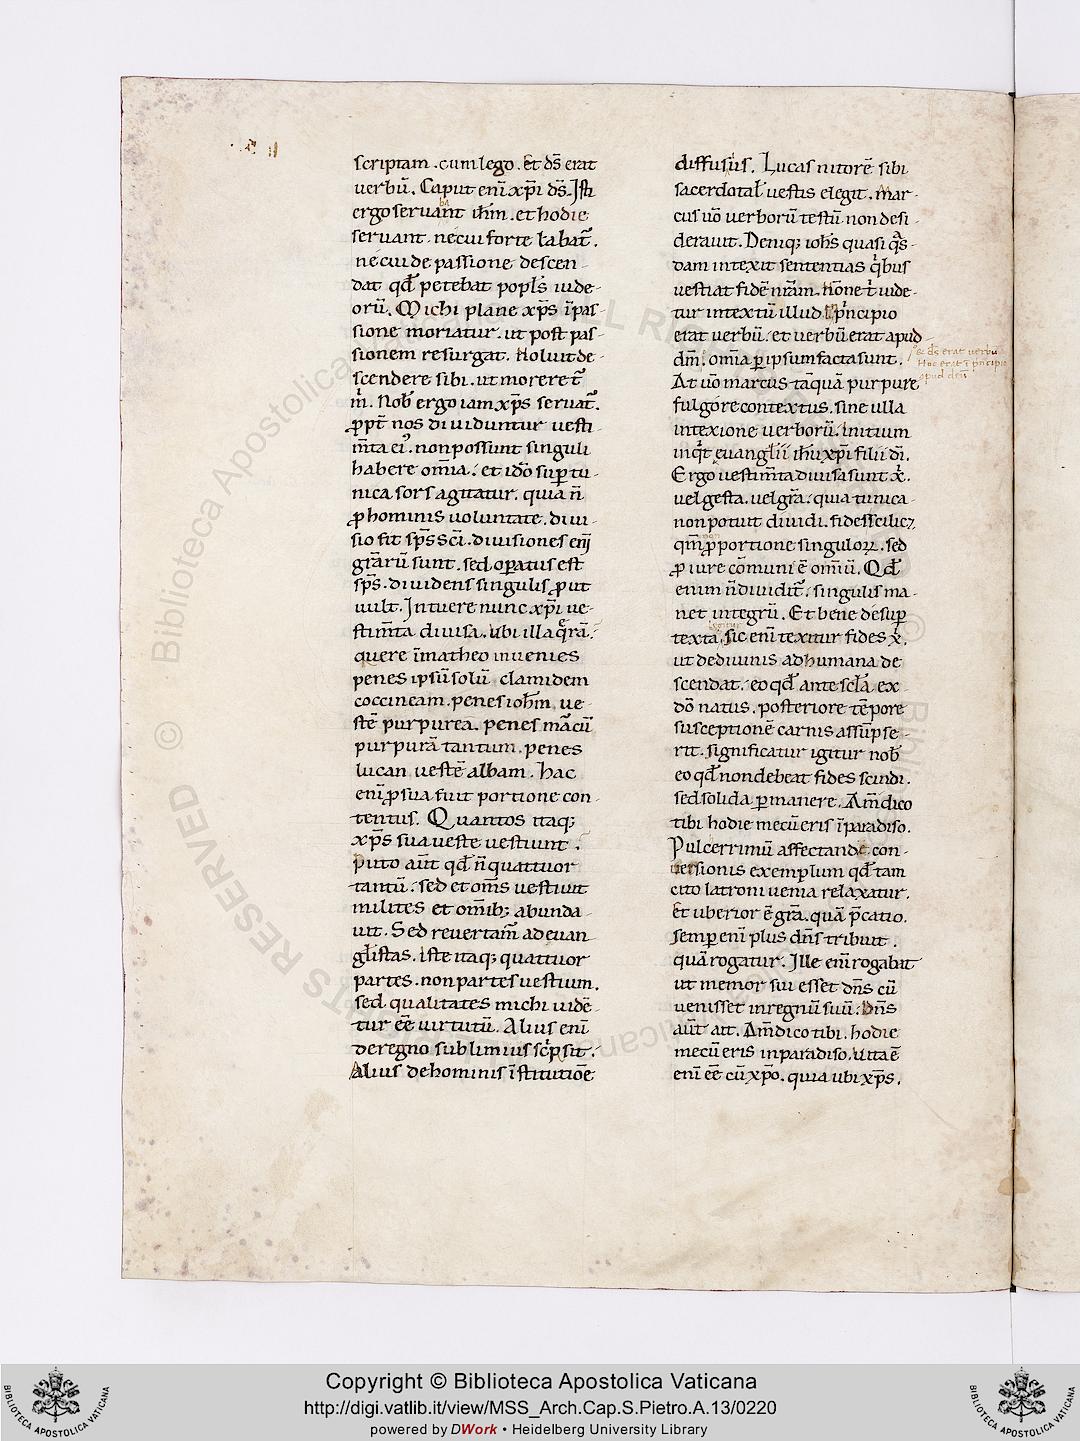 scriptam. cum lego. Et ds̄ erat
verbū. Caput enī xp̄i ds̄. Isti
ergo seruant ih̄m. et hodie
ba
seruant. ne cui forte labat᷑.
ne cui de passione descen-
dat qđ petebat popłs iude-
orū. Michi plane xp̄s ī pas-
sione moriatur. ut post pas-
sionem resurgat. Noluit de-
scendere sibi. ut moreret᷑
m̄. Nob̄ ergo iam xp̄s seruat᷑.
ꝓpt̄ nos diuiduntur uesti-
m̄ta ei᷒. non possunt singuli
habere om̄ia. et idō suꝑ tu-
nica sors agitatur. quia n̄
ꝓ hominis uoluntate. diui-
sio fit sp̄s sc̄i. diuisiones enī
gr̄arū sunt. sed oꝑatus est
sp̄s. diuidens singulis ꝓut
uult. Intuere nunc xp̄i ue-
stim̄ta diuisa. ubi illa q̄rā.
quere ī matheo inuenies
penes ipsū solū clamidem
coccineam. penes ioh̄m. ue-
stē purpureā. penes mārcū
purpurā tantum. penes
lucan uestē albam. hac
enī ꝓ sua fuit portione con-
tentus. Quantos itaq;
xp̄s sua ueste uestiunt.
puto aūt qđ n̄ quattuor
tantū. sed et om̄s uestiuit
milites et om̄ib; abunda-
uit. Sed reuertam̄ ad euan
głistas. iste itaq; quattuor
partes. non partes uestium.
sed qualitates michi uidē-
tur eē̄ uirtutū. Alius enī
de regno sublimius sc̄psit.
Alius de hominis īstitutiōe
diffusius. Lucas nitorē sibi
sacerdotał uestis elegit. mar-
cus ūo uerborū testū non desi-
derauit. Deniq; ioh̄s quasi q̄s-
dam intexit sententias q̄bus
uestiat fidē nr̄am. nōne t̄ uide-
tur intextū illud. In p̄ncipio
erat uerbū. et uerbū erat apud
dm̄. om̄ia ꝑ ipsum facta sunt.
& ds̄ erat uerbū
Hoc erat ī p̄ncipio
apud deū
At ūo marcus tāquā purpure
fulgore contextus. sine ulla
intexione uerborū. initium
inq̄t euangłii ih̄u xp̄i filii dī.
Ergo uestim̄ta diuisa sunt x̄.
uel gesta. uel gr̄a. quia tunica
non potuit diuidi. fides scilic;
qm̄ ꝓ portione singuloꝝ. sed
ꝓ iure cōmuni ē om̄iū. Qđ
enim n̄ diuidit᷑. singulis ma-
net integrū. Et bene desuꝑ
legitur
texta. sic enī texitur fides x̄.
ut de diuinis ad humana de
scendat. eo qđ ante scła ex
dō natus. posteriore tēpore
susceptionē carnis assūpse-
rit. significatur igitur nob̄
eo qđ non debeat fides scindi.
sed solida ꝑmanere. Am̄ dico
tibi hodie mecū eris ī paradiso.
Pulcerrimū affectande con-
uersionis exemplum qđ tam
cito latroni uenia relaxatur.
Et uberior ē gr̄a. quā p̄catio.
semꝑ enī plus dn̄s tribuit.
quā rogatur. Ille enī rogabat
ut memor sui esset dn̄s cū
uenisset in regnū suū. Dn̄s
aūt ait. Am̄ dico tibi. hodie
mecū eris in paradiso. Uita ē
enī eē cū xp̄o. quia ubi xp̄s.
Copyright © Biblioteca Apostolica Vaticana
http://digi.vatlib.it/view/MSS_Arch.Cap.S.Pietro.A.13/0220
powered by DWork • Heidelberg University Library